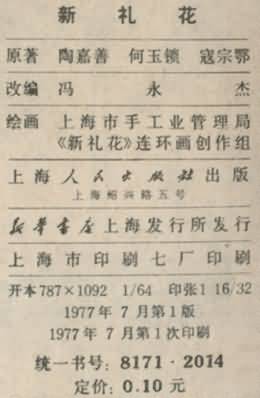 新礼花
原著 陶嘉善 何玉锁 寇宗鄂
改编 冯永杰
绘画 上海市手工业管理局
《新礼花》连环画创作组
上海人民出版社出版
上海绍兴路五号
新华书店上海发行所发行
上海市印刷七厂印刷
开本787×1092 1/64 印张1 16/32
1977年7月第1版
1977年7月第1次印刷
统一书号：8171·2014
定价：0.10元